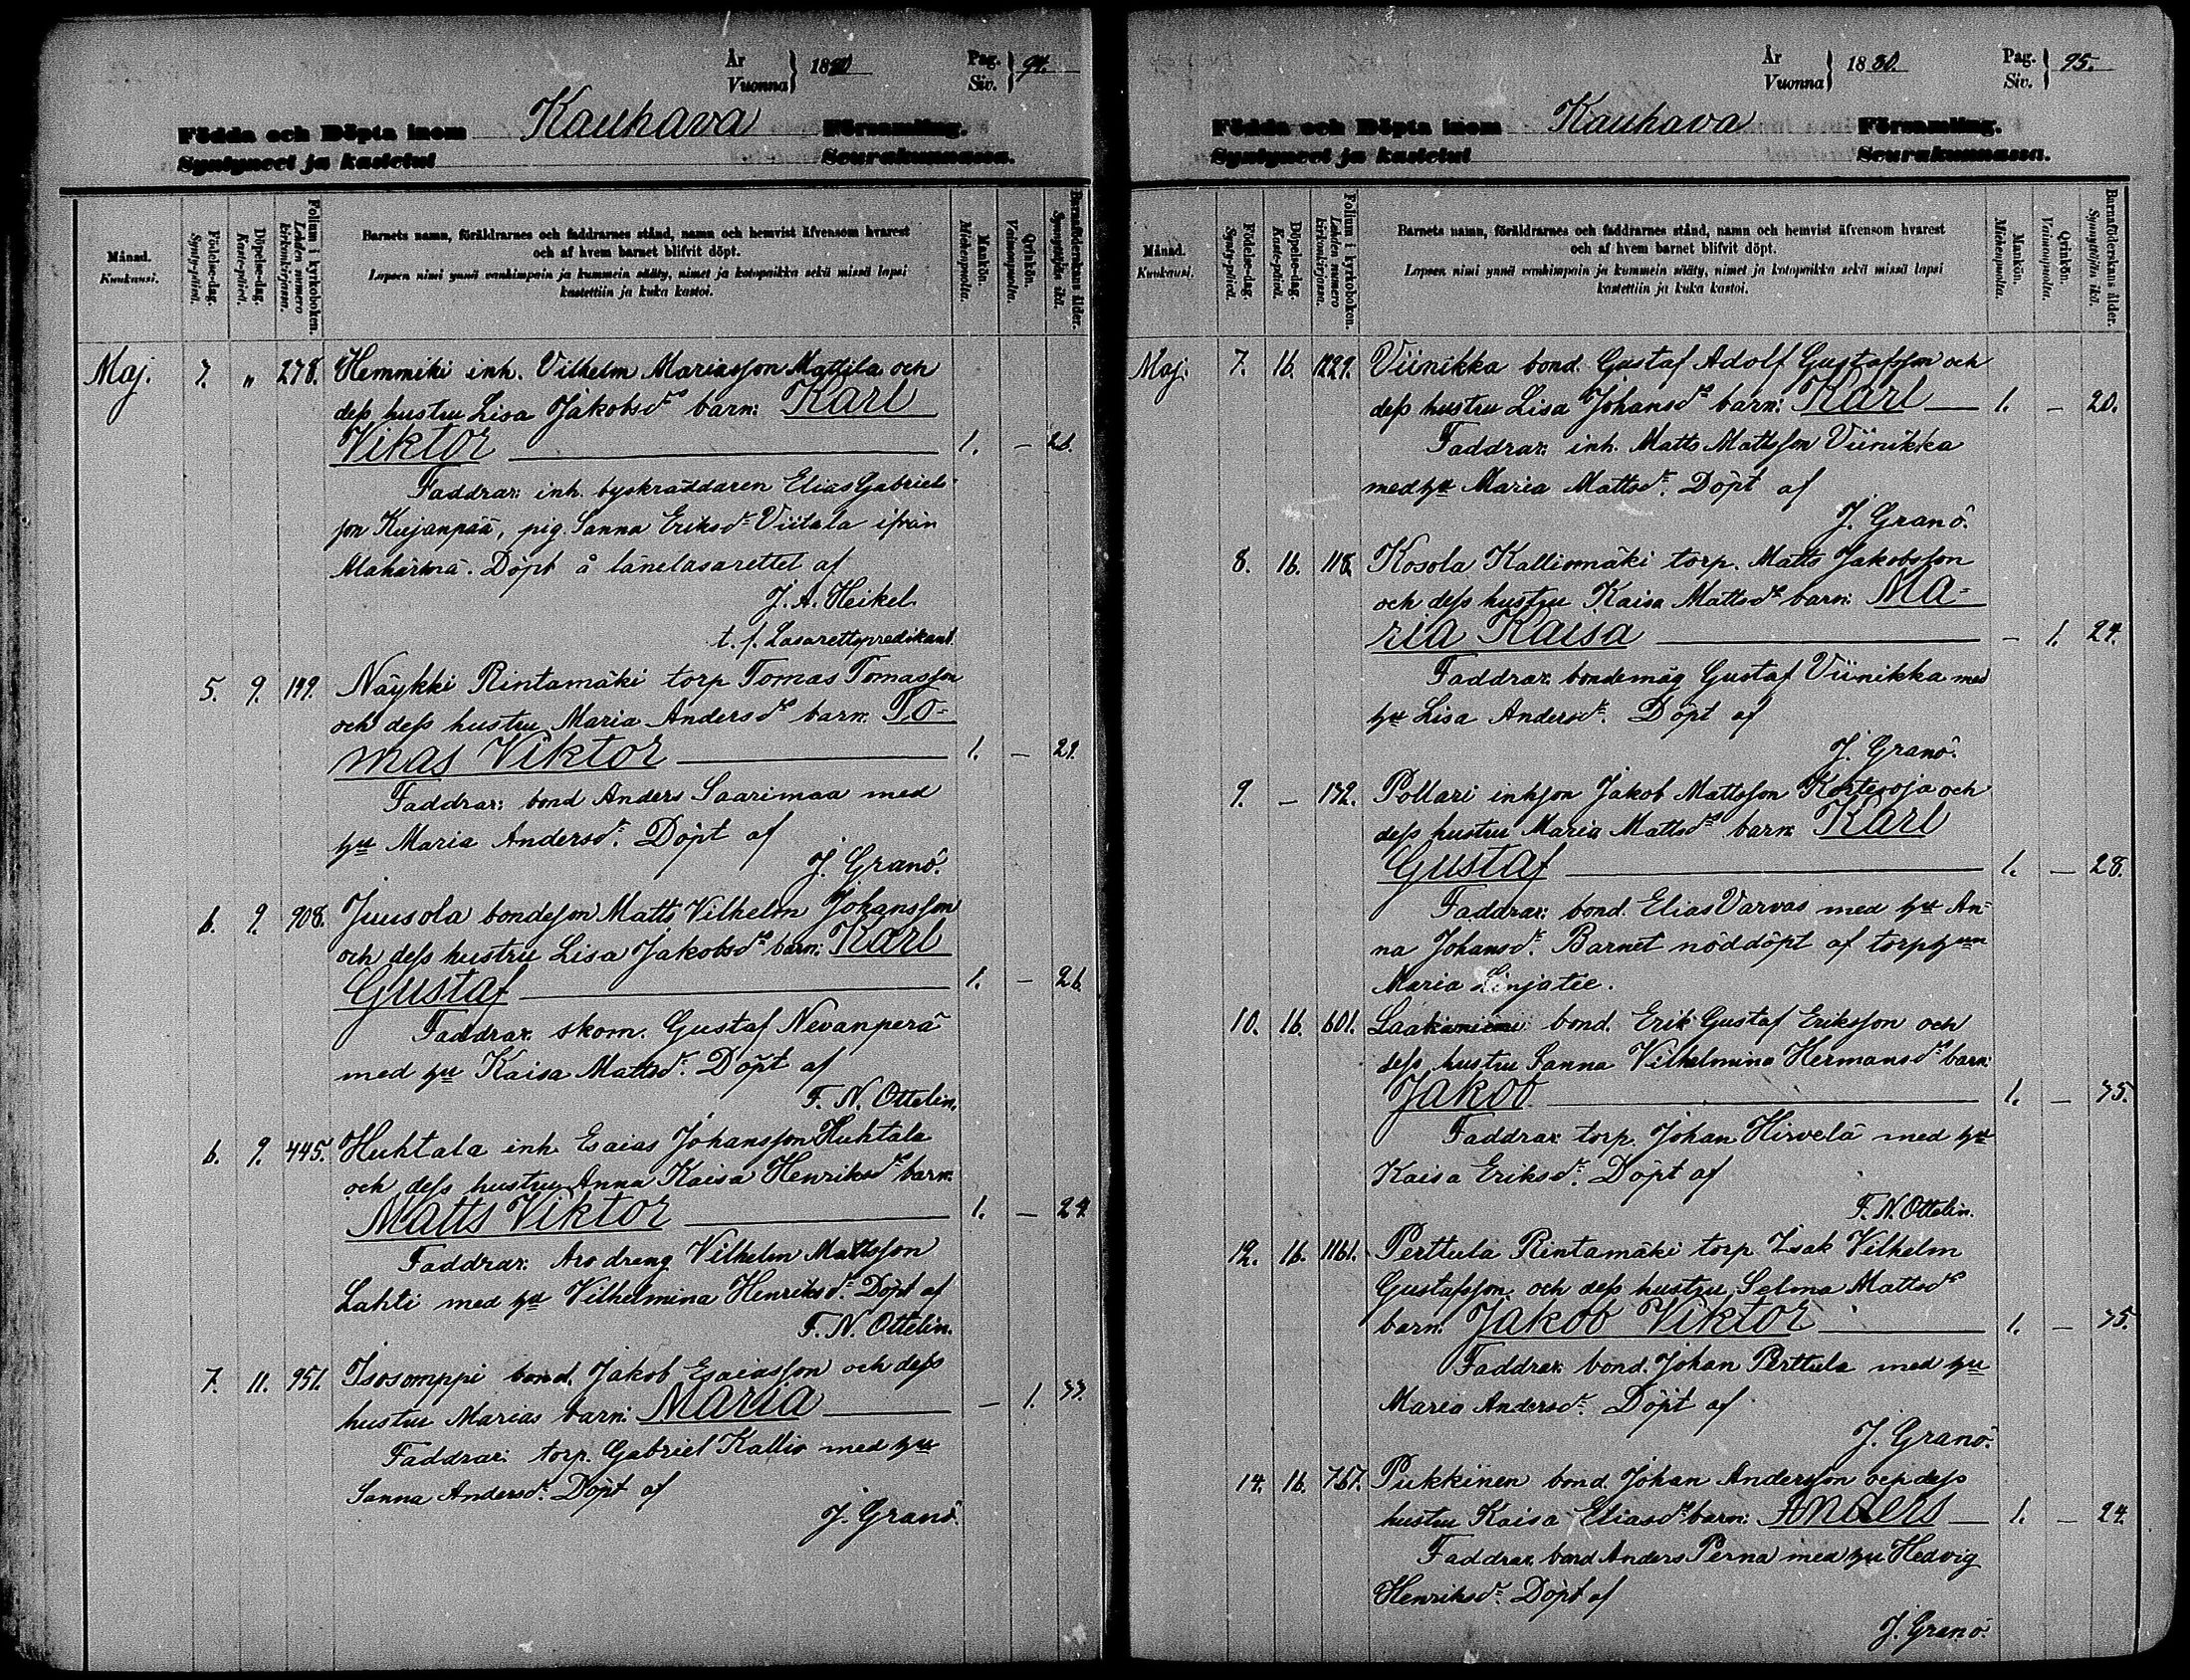 År
Vuonna } 1880
Pag.
Siv. } 94.
Födda och Döpta inom Kauhava Församling.
Syntyneet ja kastetut Seurakunnassa.
Månad.
Kuukausi.
Födelse-dag.
Synty-päivä.
Döpelse-dag.
Kaste-päivä.
Folium i kyrkoboken.
Lehden numero kirkonkirjassa.
Barnets namn, föräldrarnes och faddrarnes stånd, namn och hemvist äfvensom hvarest
och af hvem barnet blifvit döpt.
Lapsen nimi ynnä vanhimpain ja kummein sääty, nimet ja kotopaikka sekä missä lapsi
kastettiin ja kuka kastoi.
Mankön.
Miehenpuolta.
Qvinkön.
Vaimonpuolta.
Barnaföderskans ålder.
Synnyttäjän ikä.
Maj. 7. " 278. Hemmiki inh. Vilhelm Mariasson Mattila och
dess hustru Lisa Jakobsdrs barn: Karl
Viktor 1. — 26.
Faddrar: inh. byskräddaren Elias Gabriels-
son Kujanpää, pig. Sanna Eriksdr Viitala ifrån
Alahärmä. Döpt å länelasarettet af
J. A. Heikel.
t. f. Lasarettspredikant.
5. 9. 149. Näykki Rintamäki torp Tomas Tomasson
och dess hustru Maria Andersdrs barn: To-
mas Viktor 1. — 29.
Faddrar: bond Anders Saarimaa med
hu Maria Andersdr. Döpt af
J. Granö.
6. 9. 908. Juusola bondeson Matts Vilhelm Johansson
och dess hustru Lisa Jakobsdrs barn: Karl
Gustaf 1. — 26.
Faddrar: skom. Gustaf Nevanperä
med hu Kaisa Mattsdr. Döpt af
F. N. Ottelin.
6. 9. 445. Huhtala inh. Esaias Johansson Huhtala
och dess hustru Anna Kaisa Henriksdrs barn:
Matts Viktor 1. — 24.
Faddrar: Aro dreng Vilhelm Mattsson
Lahti med hu Vilhelmina Henriksdr. Döpt af
F. N. Ottelin.
7. 11. 951. Isosomppi bond. Jakob Esaiasson och dess
hustru Marias barn: Maria — 1. 33.
Faddrar: torp. Gabriel Kallio med hu
Sanna Andersdr. Döpt af
J. Granö.
År
Vuonna } 1880.
Pag.
Siv. } 95.
Födda och Döpta inom Kauhava Församling.
Syntyneet ja kastetut Seurakunnassa.
Månad.
Kuukausi.
Födelse-dag.
Synty-päivä.
Döpelse-dag.
Kaste-päivä.
Folium i kyrkoboken.
Lehden numero kirkonkirjassa.
Barnets namn, föräldrarnes och faddrarnes stånd, namn och hemvist äfvensom hvarest
och af hvem barnet blifvit döpt.
Lapsen nimi ynnä vanhimpain ja kummein sääty, nimet ja kotopaikka sekä missä lapsi
kastettiin ja kuka kastoi.
Mankön.
Miehenpuolta.
Qvinkön.
Vaimonpuolta.
Barnaföderskans ålder.
Synnyttäjän ikä.
Maj. 7. 16. 1229. Viinikka bond. Gustaf Adolf Gustafsson och
dess hustru Lisa Johansdrs barn: Karl 1. — 20.
Faddrar: inh. Matts Mattsson Viinikka
med hu Maria Mattsdr. Döpt af
J. Granö.
8. 16. 118. Kosola Kalliomäki torp. Matts Jakobsson
och dess hustru Kaisa Mattsdrs barn: Ma-
ria Kaisa — 1. 24.
Faddrar: bondemåg Gustaf Viinikka med
hu Lisa Andersdr. Döpt af
J. Granö.
9. — 132. Pollari inhson Jakob Mattsson Kortesoja och
dess hustru Maria Mattsdrs barn: Karl
Gustaf 1. — 28.
Faddrar: bond. Elias Varvas med hu An-
na Johansdr. Barnet nöddöpt af torphun
Maria Linjatie.
10. 16. 601. Laakaniemi bond. Erik Gustaf Eriksson och
dess hustru Sanna Vilhelmina Hermansdrs barn:
Jakob 1. — 35.
Faddrar: torp. Johan Hirvelä med hu
Kaisa Eriksdr. Döpt af
F. N. Ottelin.
12. 16. 1161. Perttula Rintamäki torp Isak Vilhelm
Gustafsson och dess hustru Selma Mattsdrs
barn: Jakob Viktor 1. — 35.
Faddrar: bond. Johan Perttula med hu
Maria Andersdr. Döpt af
J. Granö.
14. 16. 767. Pukkinen bond. Johan Andersson och dess
hustru Kaisa Eliasdrs barn: Anders 1. — 24.
Faddrar: bond Anders Perna med hu Hedvig
Henriksdr. Döpt af
J. Granö.